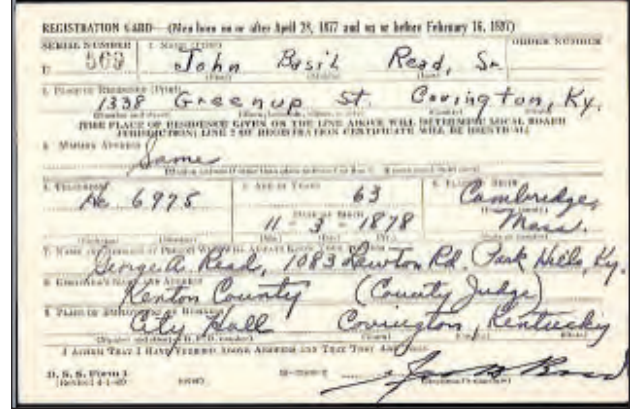 REGISTRATION CARD—(Men born on or after April 28, 1877 and on or before February 16, 1897)
SERIAL NUMBER 1. NAME (Print) ORDER NUMBER
U 569 John Basil Read, Sr.
(First) (Middle) (Last)
2. PLACE OF RESIDENCE (Print)
1338 Greenup St. Covington, Ky.
[THE PLACE OF RESIDENCE GIVEN ON THE LINE ABOVE WILL DETERMINE LOCAL BOARD
JURISDICTION; LINE 2 OF REGISTRATION CERTIFICATE WILL BE IDENTICAL]
3. MAILING ADDRESS
Same
4. TELEPHONE 5. AGE IN YEARS 6. PLACE OF BIRTH
6975 63 Cambridge,
DATE OF BIRTH
11 - 3 - 1878 Mass.
(Mo.) (Day) (Yr.)
7. NAME AND ADDRESS OF PERSON WHO WILL ALWAYS KNOW YOUR ADDRESS
George A. Read, 1083 Lawton Rd. Park Hills, Ky.
8. EMPLOYER'S NAME AND ADDRESS
Kenton County (County Judge)
9. PLACE OF EMPLOYMENT OR BUSINESS
City Hall Covington, Kentucky
I AFFIRM THAT I HAVE VERIFIED ABOVE ANSWERS AND THAT THEY ARE TRUE.
D. S. S. Form 1
(Revised 4-1-42)